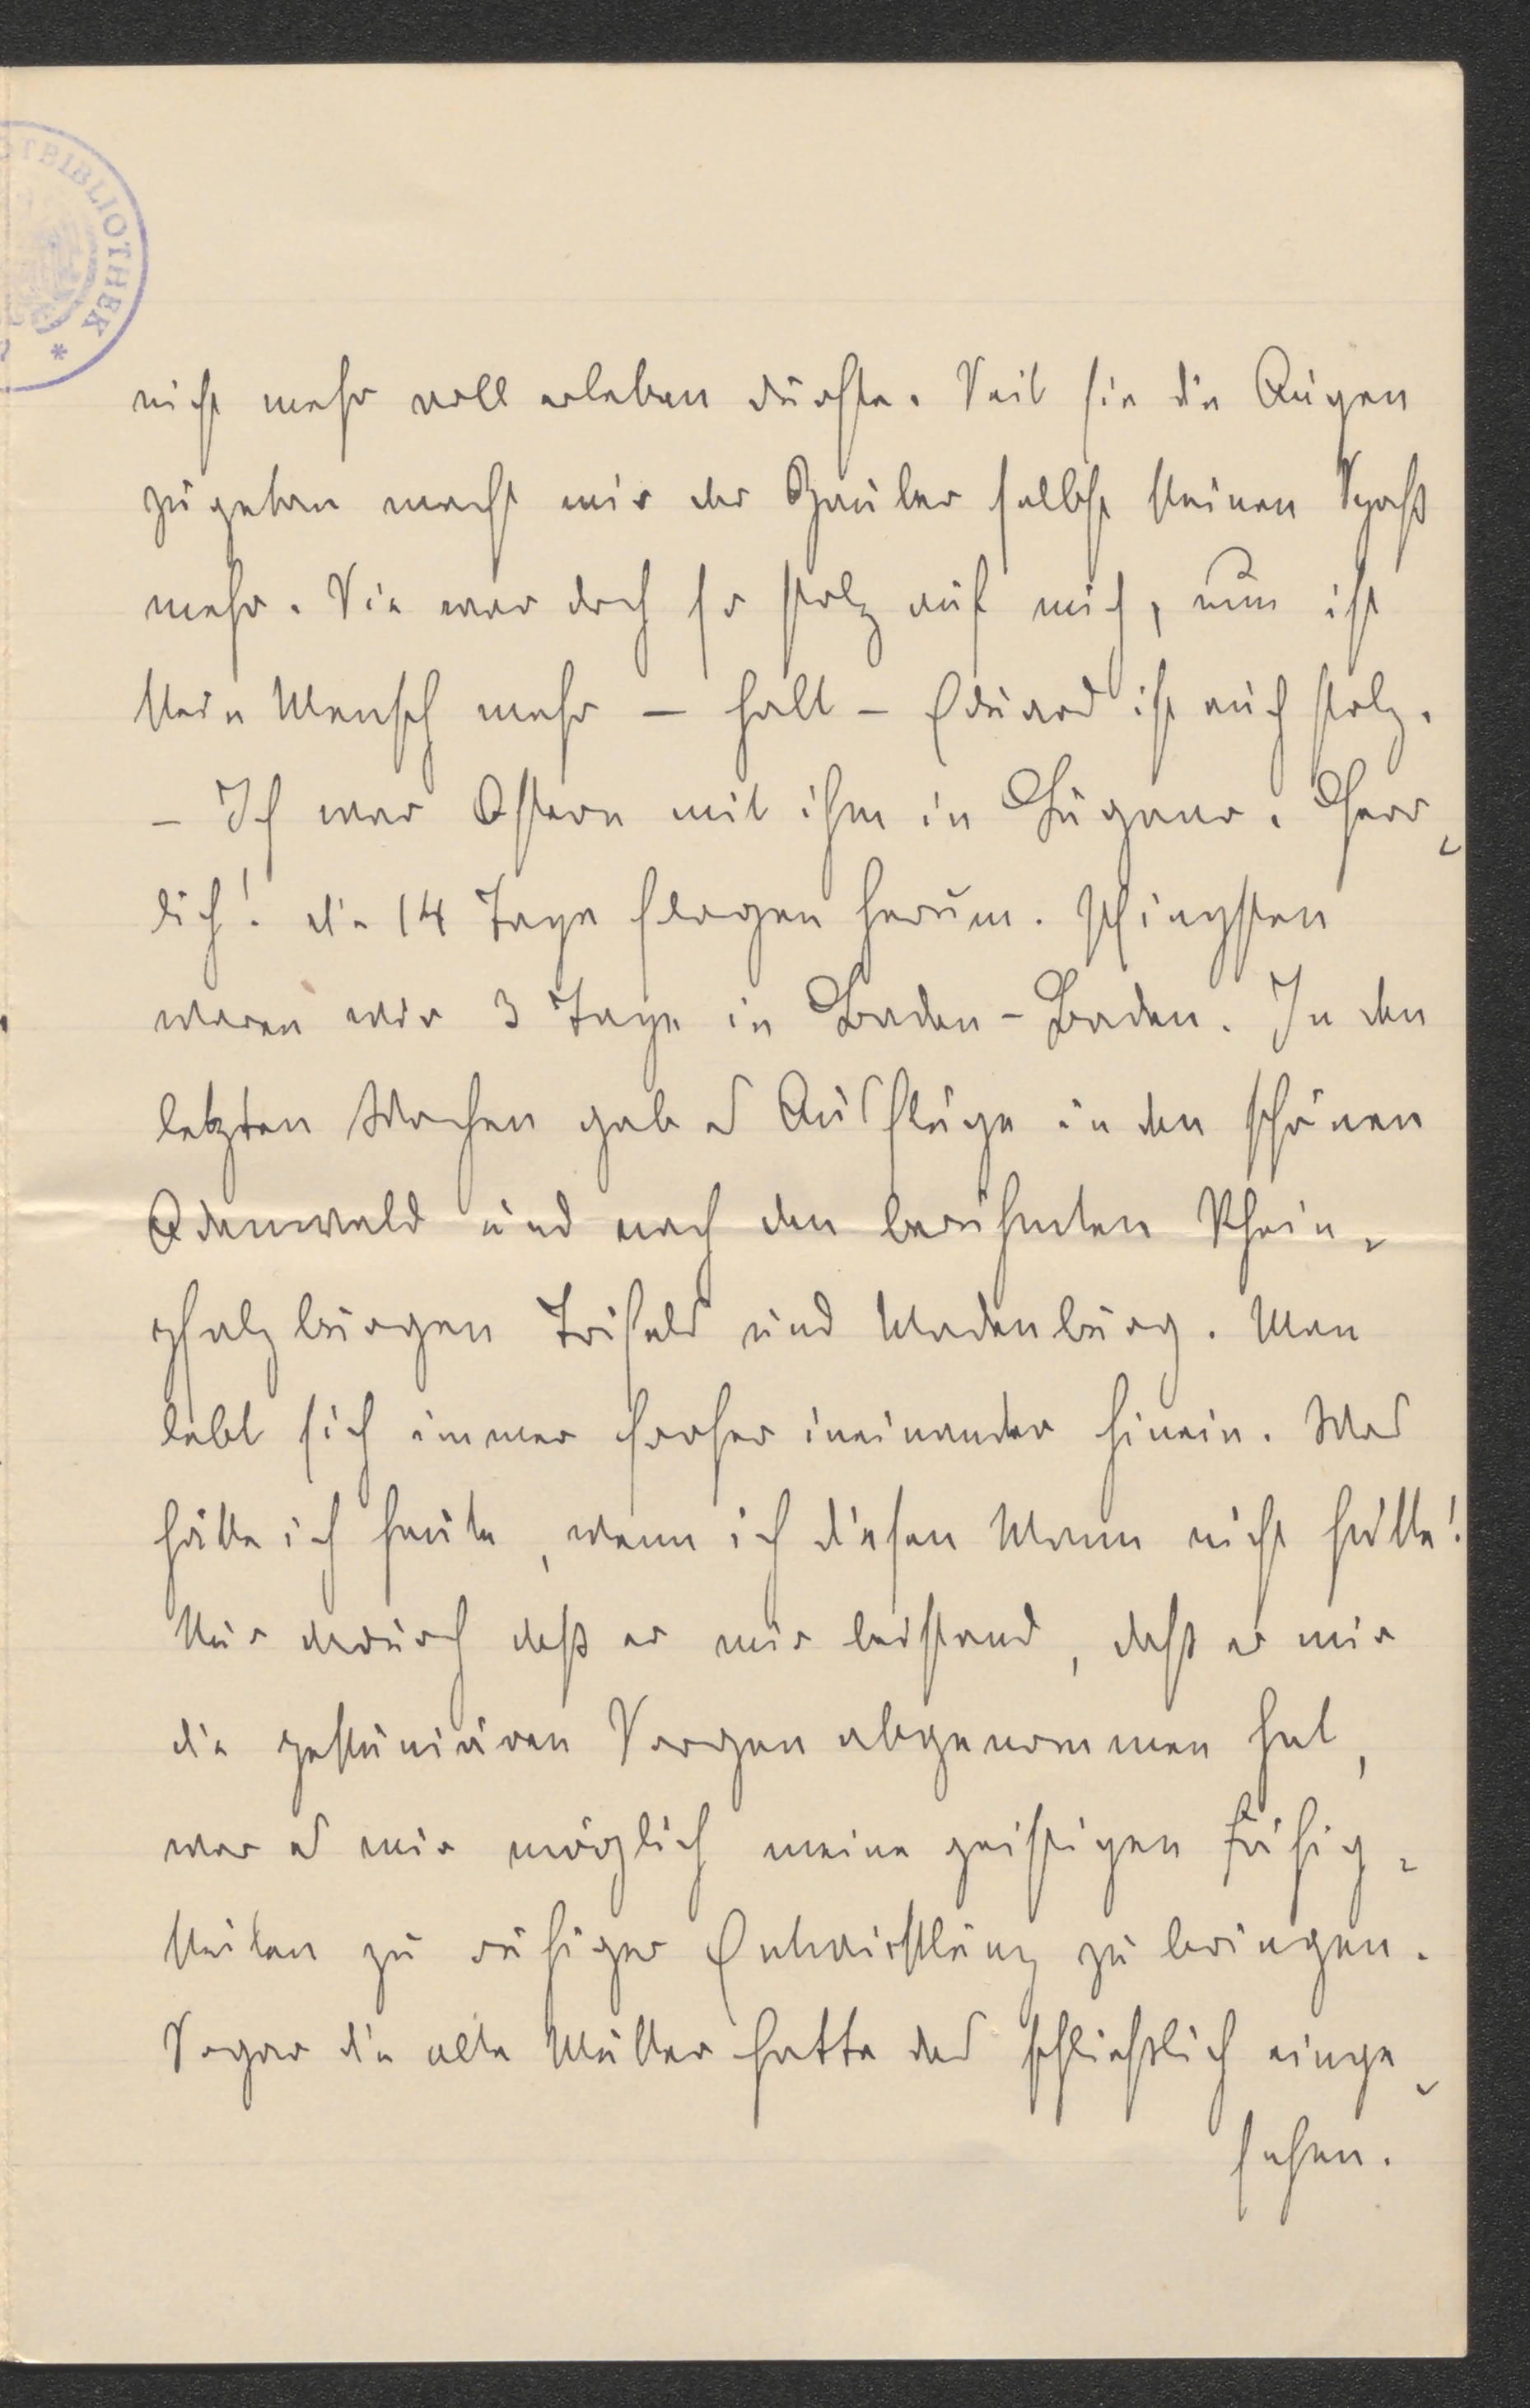 OTBIBLIOTHEK
*
nicht mehr voll erleben durfte. Seit sie die Augen
zugetan macht mir der Zauber selbst keinen Spaß
mehr. Sie war doch so stolz auf mich, nun ist
kein Mensch mehr – halt – Eduard ist auch stolz.
– Ich war Ostern mit ihm in Lugano. Herr-
lich! die 14 Tage flogen herum. Pfingsten
waren wir 3 Tage in Baden-Baden. In den
letzten Wochen gab es Ausflüge in den schönen
Odenwald und nach den berühmten Rhein-
pfalzburgen Trifels und Madenburg. Man
lebt sich immer froher ineinander hinein. Was
hätte ich heute, wenn ich diesen Mann nicht hätte!
Nur dadurch daß er mir beistand, daß er mir
die pekuniären Sorgen abgenommen hat,
war es mir möglich meine geistigen Fähig-
keiten zu ruhiger Entwicklung zu bringen.
Sogar die alte Mutter hatte das schließlich einge-
sehen.